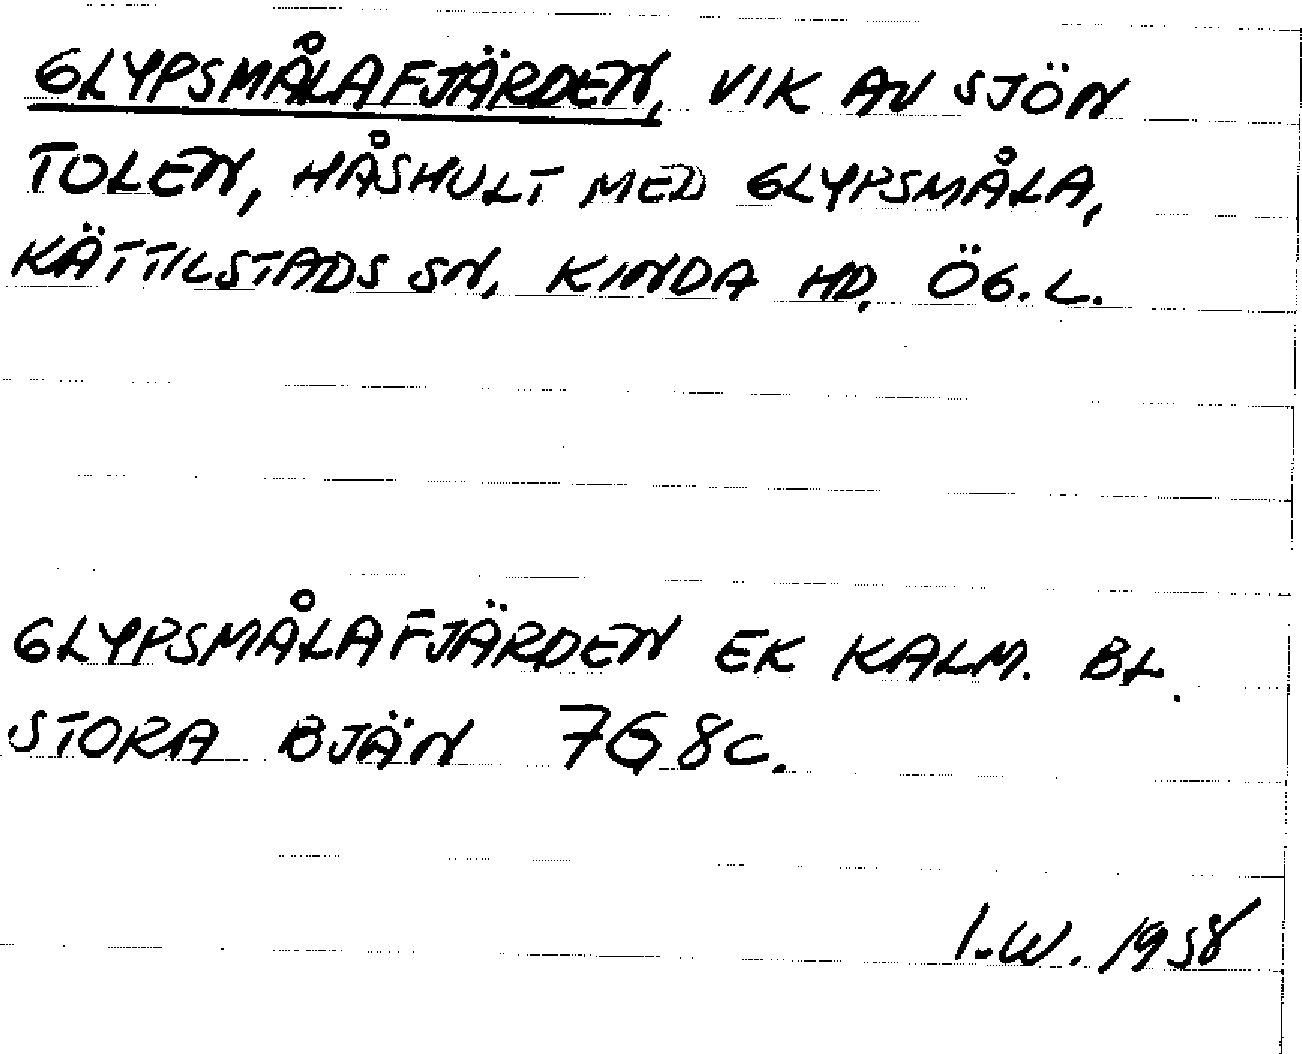 GLYPSMÅLAFJÄRDEN, VIK AV SJÖN
TOLEN, HÅSHULT MED GLYPSMÅLA,
KÄTTILSTADS SN, KINDA HD, ÖG.L.
GLYPSMÅLAFJÄRDEN EK KALM. BL.
STORA BJÄN 7G8C.
I.W. 1958